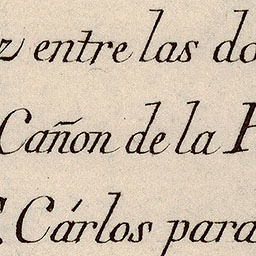 z entre las do
Cañon de la
Cárlos para